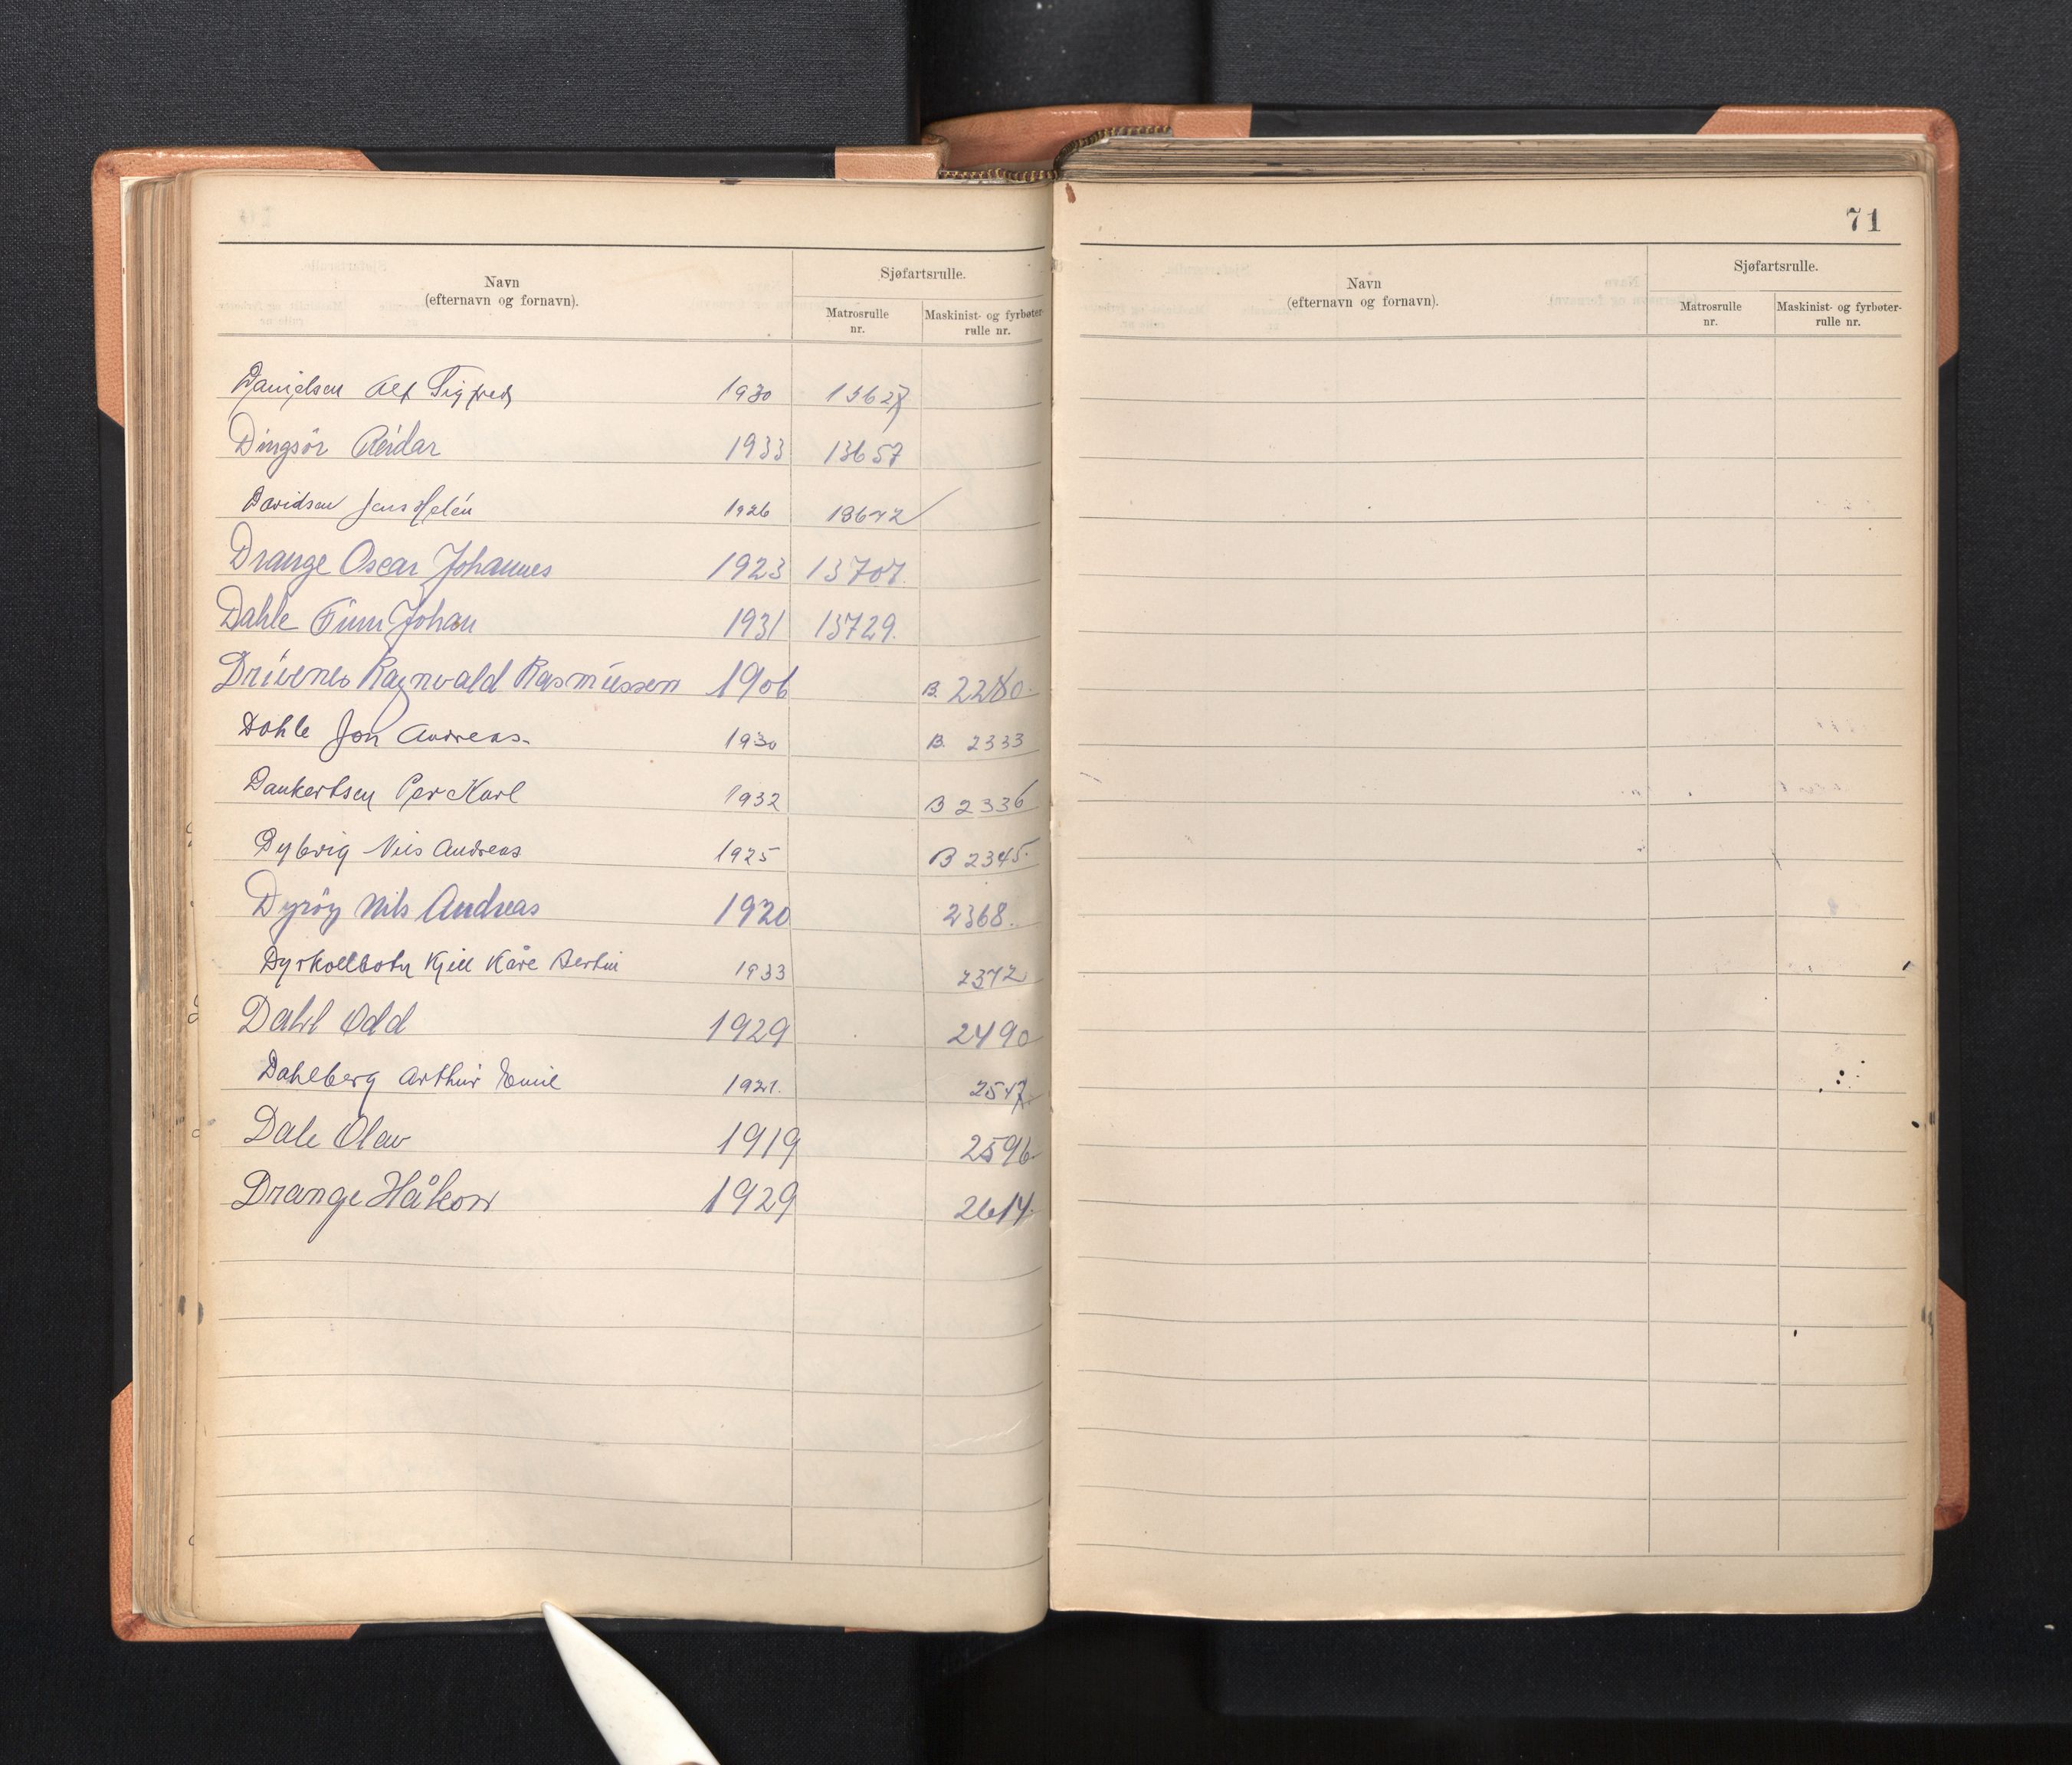 Navn
(efternavn og fornavn).
Sjøfartsrulle.
Matrosrulle
nr.
Maskinist- og fyrbøter-
rulle nr.
Danielsen Alf Sigfred 1930 13627
Dingsör Reidar 1933 13657
Davidsen Jens Helén 1926 13672
Drange Oscar Johannes 1923 13707.
Dahle Finn Johan 1931 13729.
Drivenes Ragnvald Rasmussen 1906 B. 2280.
Dahle Jon Andreas. 1930 B. 2333
Dankertsen Per Karl 1932 B 2336
Dybvig Nils Andreas 1925 B 2345.
Dyröy Nils Andreas 1920 2368.
Dyrkolbotn Kjell Kåre Bertin 1933 2372
Dahl Odd 1929 2490
Dahlberg Arthur Emil 1921. 2547.
Dale Olav 1919 2596
Drange Håkon 1929 2614.
71
Navn
(efternavn og fornavn).
Sjøfartsrulle.
Matrosrulle
nr.
Maskinist- og fyrbøter-
rulle nr.